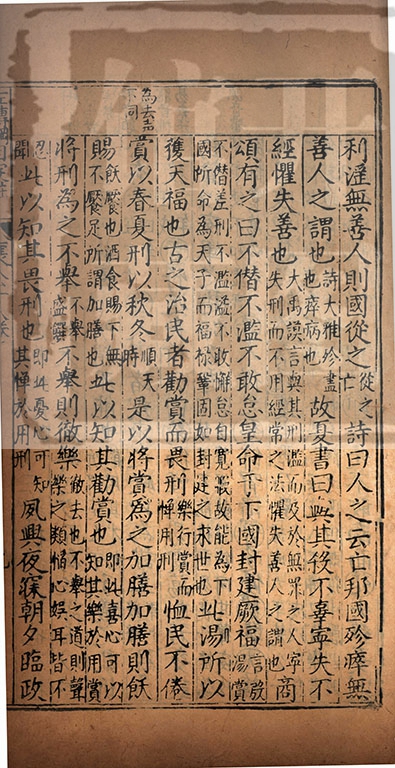 利淫無善人則國從之從之亡詩曰人之云亡邦國殄瘁無
善人之謂也詩大雅殄盡也瘁病也故夏書曰與其殺不辜寧失不
經懼失善也大禹謨言與其刑濫而及於無罪之人寧失刑而不用經常之法懼失善人之謂也商
頌有之曰不僭不濫不敢怠皇命于下國封建厥福言殷湯賞
不僭差刑不濫溢不敢懈怠自寬暇故能為下國所命為天子而福祿鞏固如封建之永世也此湯所以
獲天福也古之治民者勸賞而畏刑樂行賞而憚用刑恤民不倦
為去聲下同
賞以春夏刑以秋冬順天時是以將賞為之加膳加膳則飫
賜飫饜也酒食賜下無不饜足所謂加膳也此以知其勸賞也即此喜心可以知其樂於用賞
將刑為之不舉不舉盛饌不舉則徹樂徹去也不舉之道則聲樂之類心娛耳皆不
忍聞此以知其畏刑也即此憂心可知其憚於用刑夙興夜寐朝夕臨政